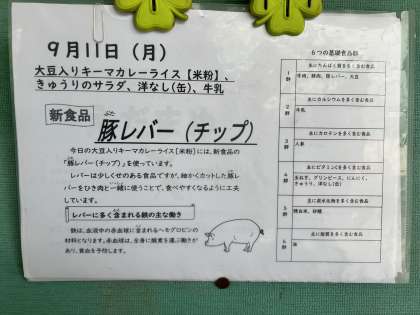 9月11日（月）
大豆入りキーマカレーライス【米粉】、
きゅうりのサラダ、洋なし(缶)、牛乳
新食品
ぶた
豚レバー（チップ）
今日の大豆入りキーマカレーライス【米粉】には、新食品の
「豚レバー(チップ)」を使っています。
レバーは少しくせのある食品ですが、細かくカットした豚レ
バーをひき肉と一緒に使うことで、食べやすくなるように工夫
しています。
レバーに多く含まれる鉄の主な働き
鉄は、血液中の赤血球に含まれるヘモグロビンの
材料となります。赤血球は、全身に酸素を運ぶ働きが
あり、貧血を予防します。
6つの基礎食品群
1群
主にたんぱく質を多く含む食品
牛肉、豚肉、豚レバー、大豆
2群
主にカルシウムを多く含む食品
牛乳
3群
主にカロテンを多く含む食品
人参
4群
主にビタミンCを多く含む食品
玉ねぎ、グリンピース、にんにく、
きゅうり、洋なし(缶)
5群
主に炭水化物を多く含む食品
精白米、砂糖
6群
主に脂質を多く含む食品
油